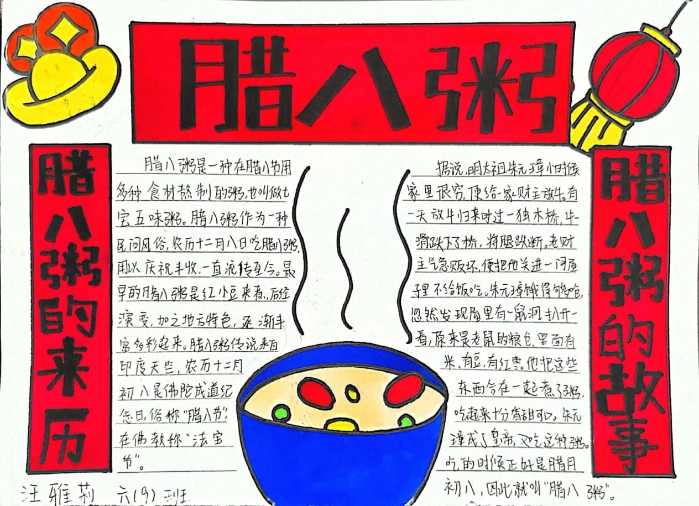 腊八粥
腊八粥的来历
腊八粥是一种在腊八节用
多种食材熬制的粥,也叫做七
宝五味粥。腊八粥作为一种
民间风俗,农历十二月八日吃腊八粥,
用以庆祝丰收,一直流传至今。最
早的腊八粥是红小豆来煮,后经
演变,加之地方特色,逐渐丰
富多彩起来。腊八粥传说来自
印度天竺,农历十二月
初八是佛陀成道纪
念日,俗称“腊八节”,
在佛教称“法宝
节”。
汪雅莉 六(9)班
腊八粥的故事
据说,明太祖朱元璋小时候
家里很穷,便给一家财主放牛。有
一天放牛归来时过一独木桥,牛
滑跌下了桥,将腿跌断,老财
主气急败坏,便把他关进一间屋
子里不给饭吃。朱元璋饿得够呛,
忽然发现屋里有一鼠洞,扒开一
看,原来是老鼠的粮仓,里面有
米、有豆,有红枣,他把这些
东西合在一起煮了粥,
吃起来十分香甜可口。朱元
璋成了皇帝,又吃这种粥。
吃的时候正好是腊月
初八,因此就叫“腊八粥”。